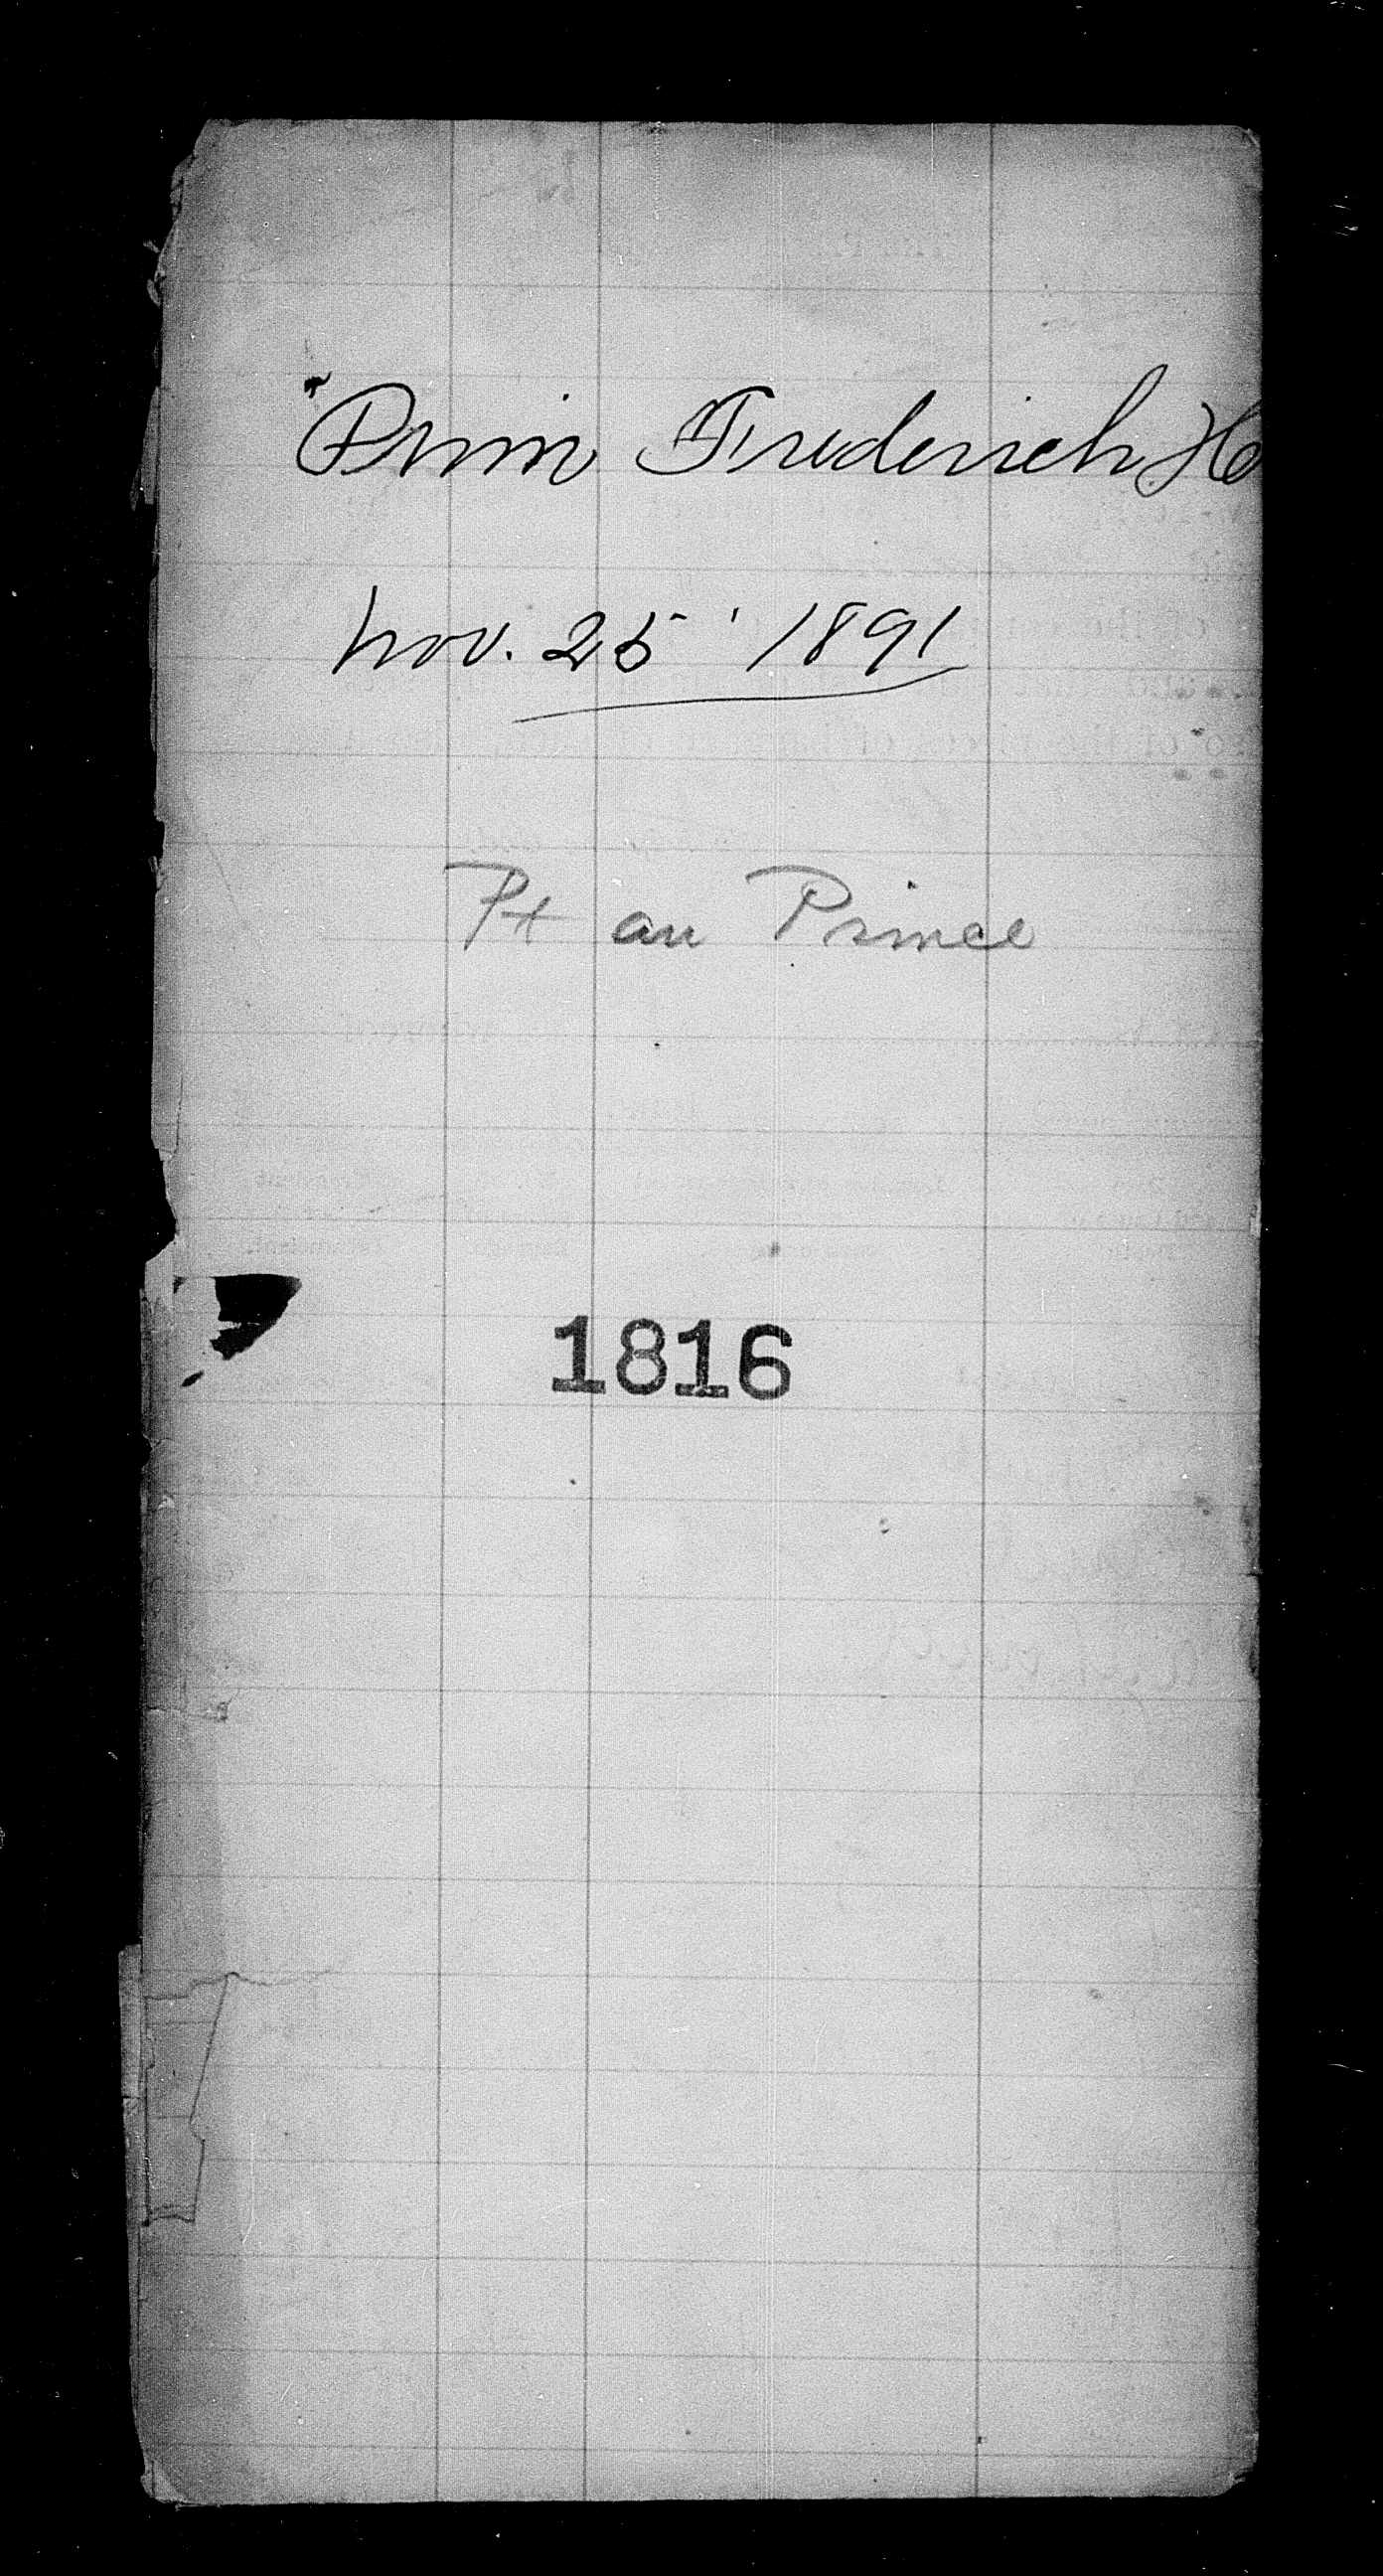 Prim Frederich H
Nov. 25' 1891
Pt au Prince
1816